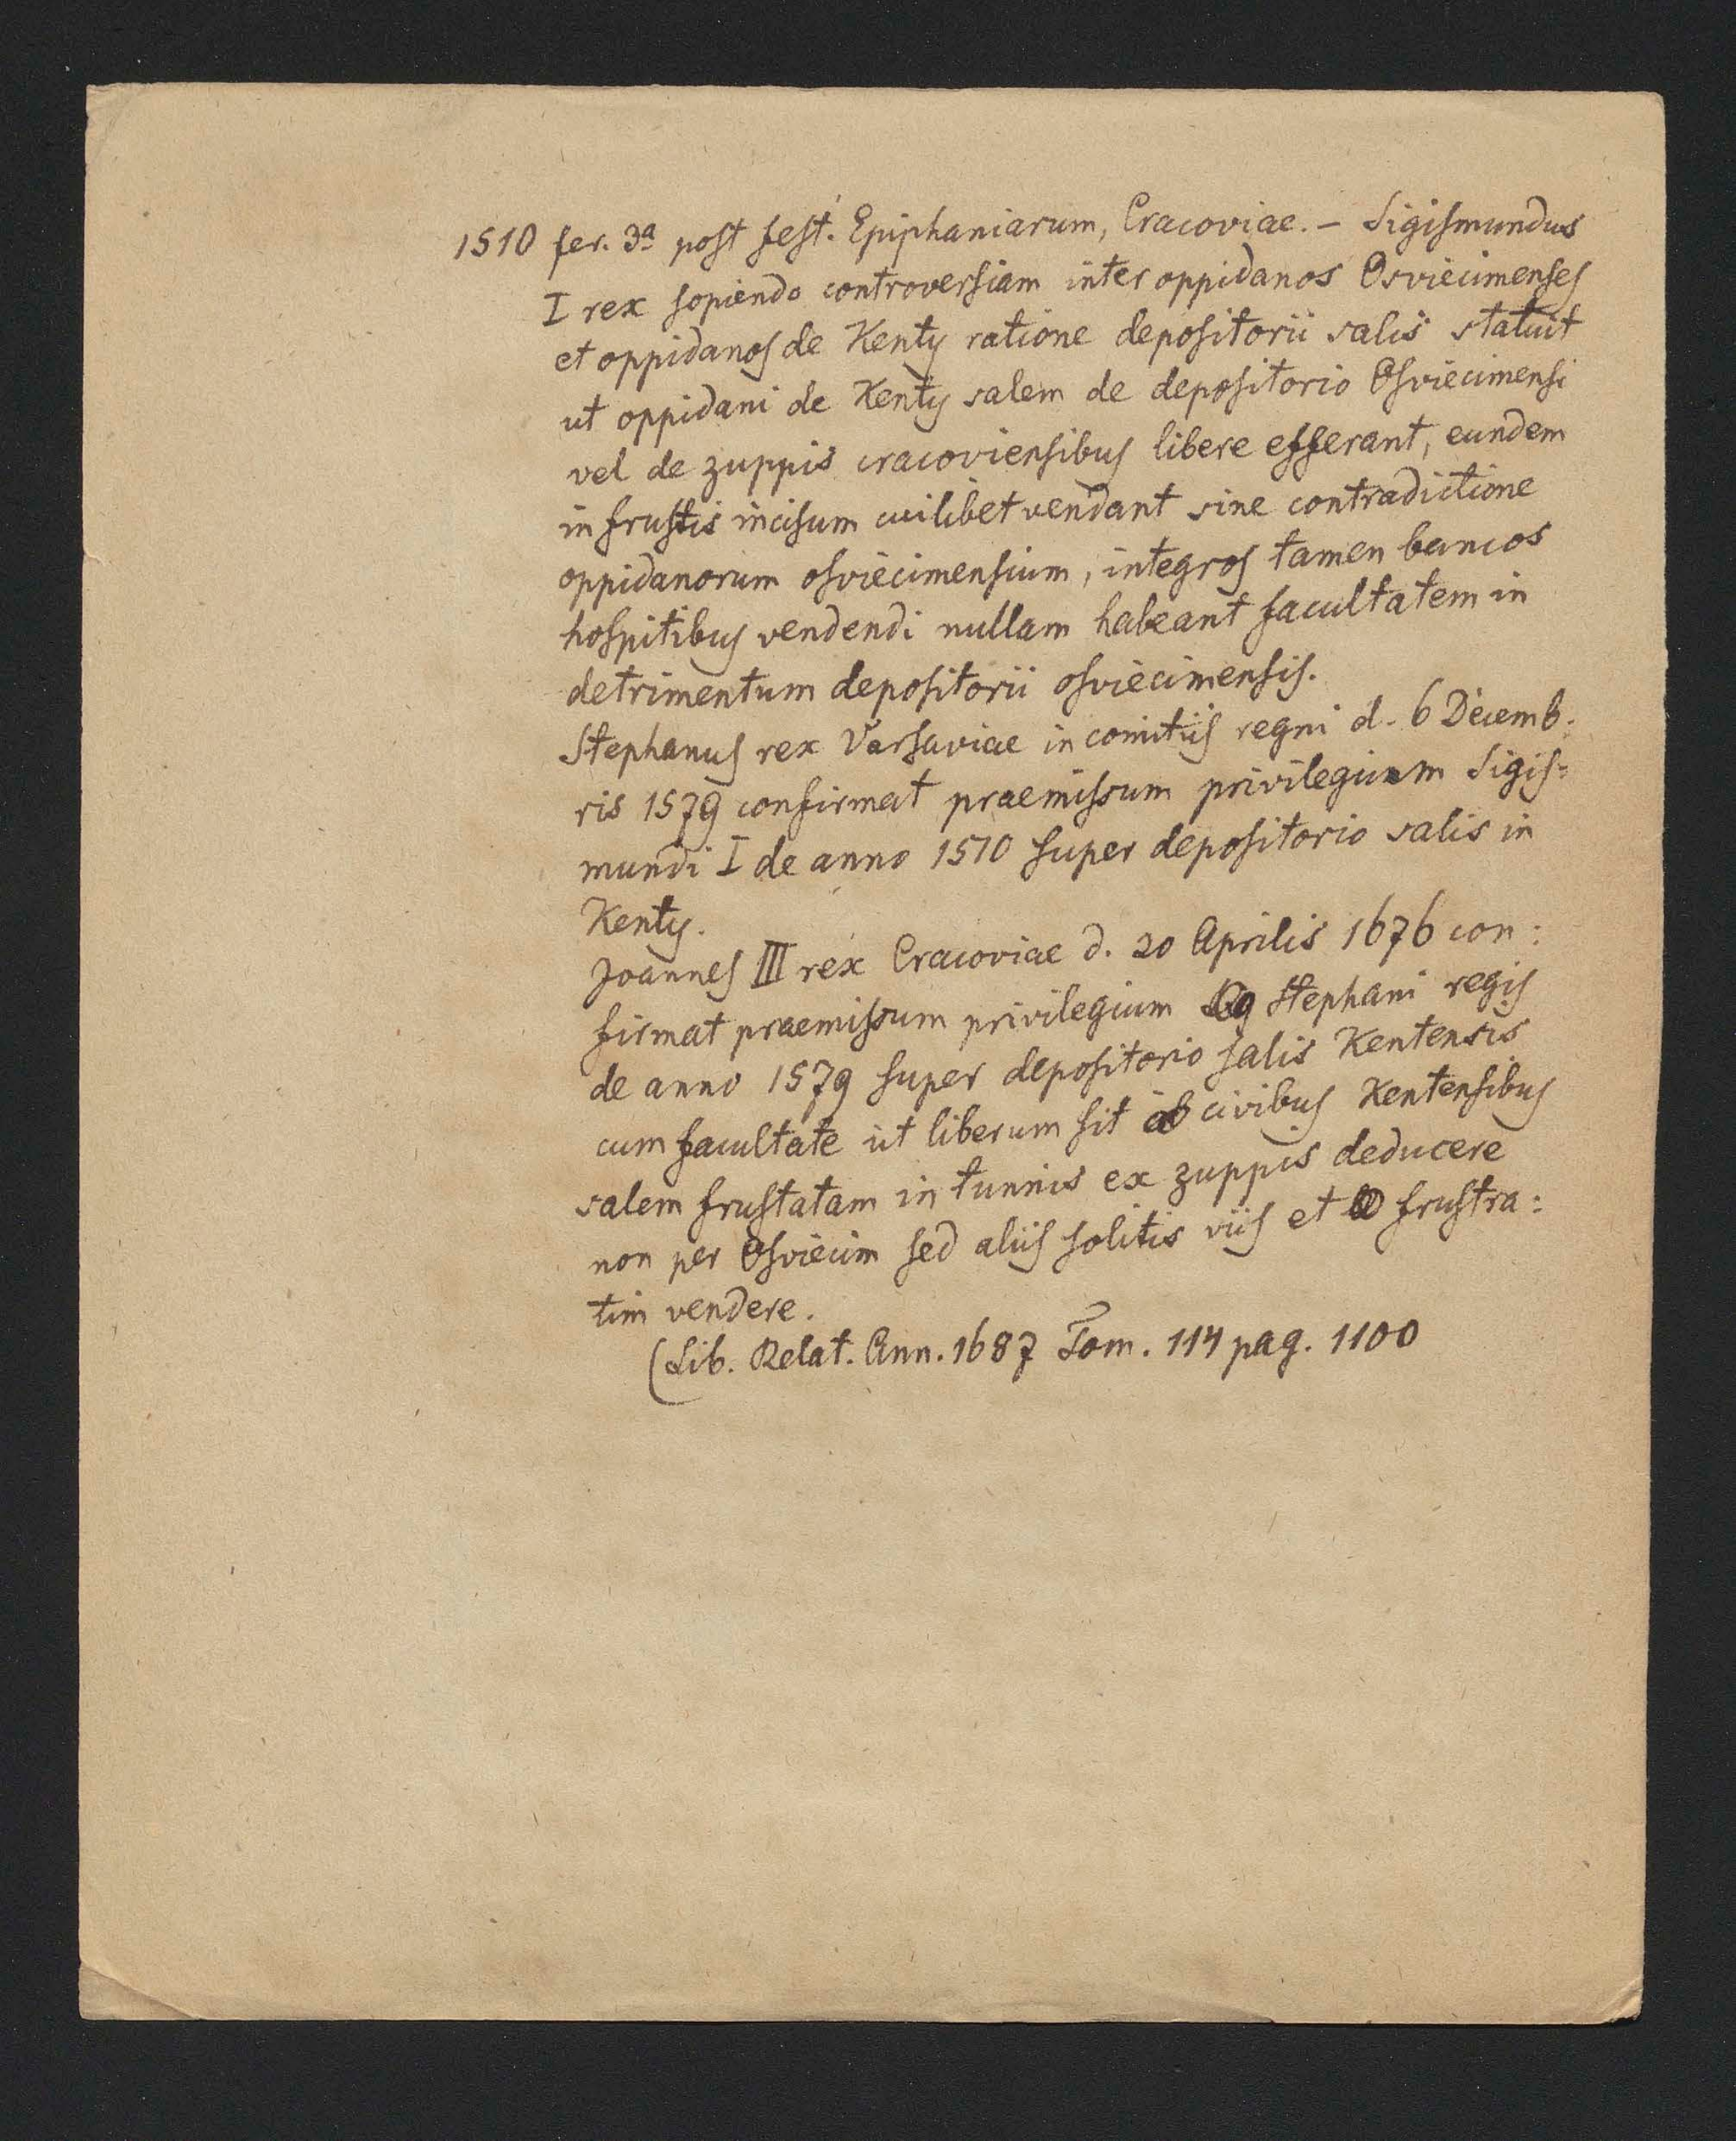 1510 fer. 3ª post fest. Epiphaniarum, Cracoviae. – Sigismundus
I rex sopiendo controversiam inter oppidanos Osviecimenses
et oppidanos de Kenty ratione depositorii salis statuit
ut oppidani de Kenty salem de depositorio Osviecimensi
vel de zuppis cracoviensibus libere efferant, eundem
in frustis incisum cuilibet vendant sine contradictione
oppidanorum osviecimensium, integros tamen bancos
hospitibus vendendi nullam habeant facultatem in
detrimentum depositorii osviecimensis.
Stephanus rex Varsaviae in comitiis regni d. 6 Decemb:
ris 1579 confirmat praemissum privilegium Sigis=
mundi I de anno 1510 super depositorio salis in
Kenty.
Joannes III rex Cracoviae d. 20 Aprilis 1676 con:
firmat praemissum privilegium Stephani regis
de anno 1579 super depositorio salis Kentensis
cum facultate ut liberum sit ab civibus Kentensibus
salem frustatam in tunnis ex zuppis deducere
non per Osviecim sed aliis solitis viis et frustra:
tim vendere.
(Lib. Relat. Ann. 1687 Tom. 114 pag. 1100